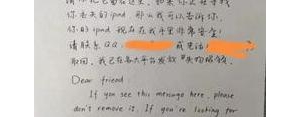 你丢失的ipad,那么我可以告诉你,
你的ipad现在在我手里非常安全!
请联系QQ: 或电话:
取回。我已在各大平台发放失物招领。
Dear friend:
If you see this message here, please
don't remove it. If you're looking for